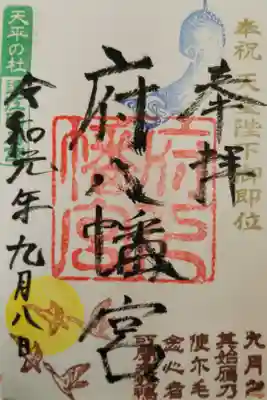 奉祝 天皇陛下御即位
奉拝
府八幡宮
天平の社
令和元年九月八日
九月之
其始雁乃
使尓毛
念心者